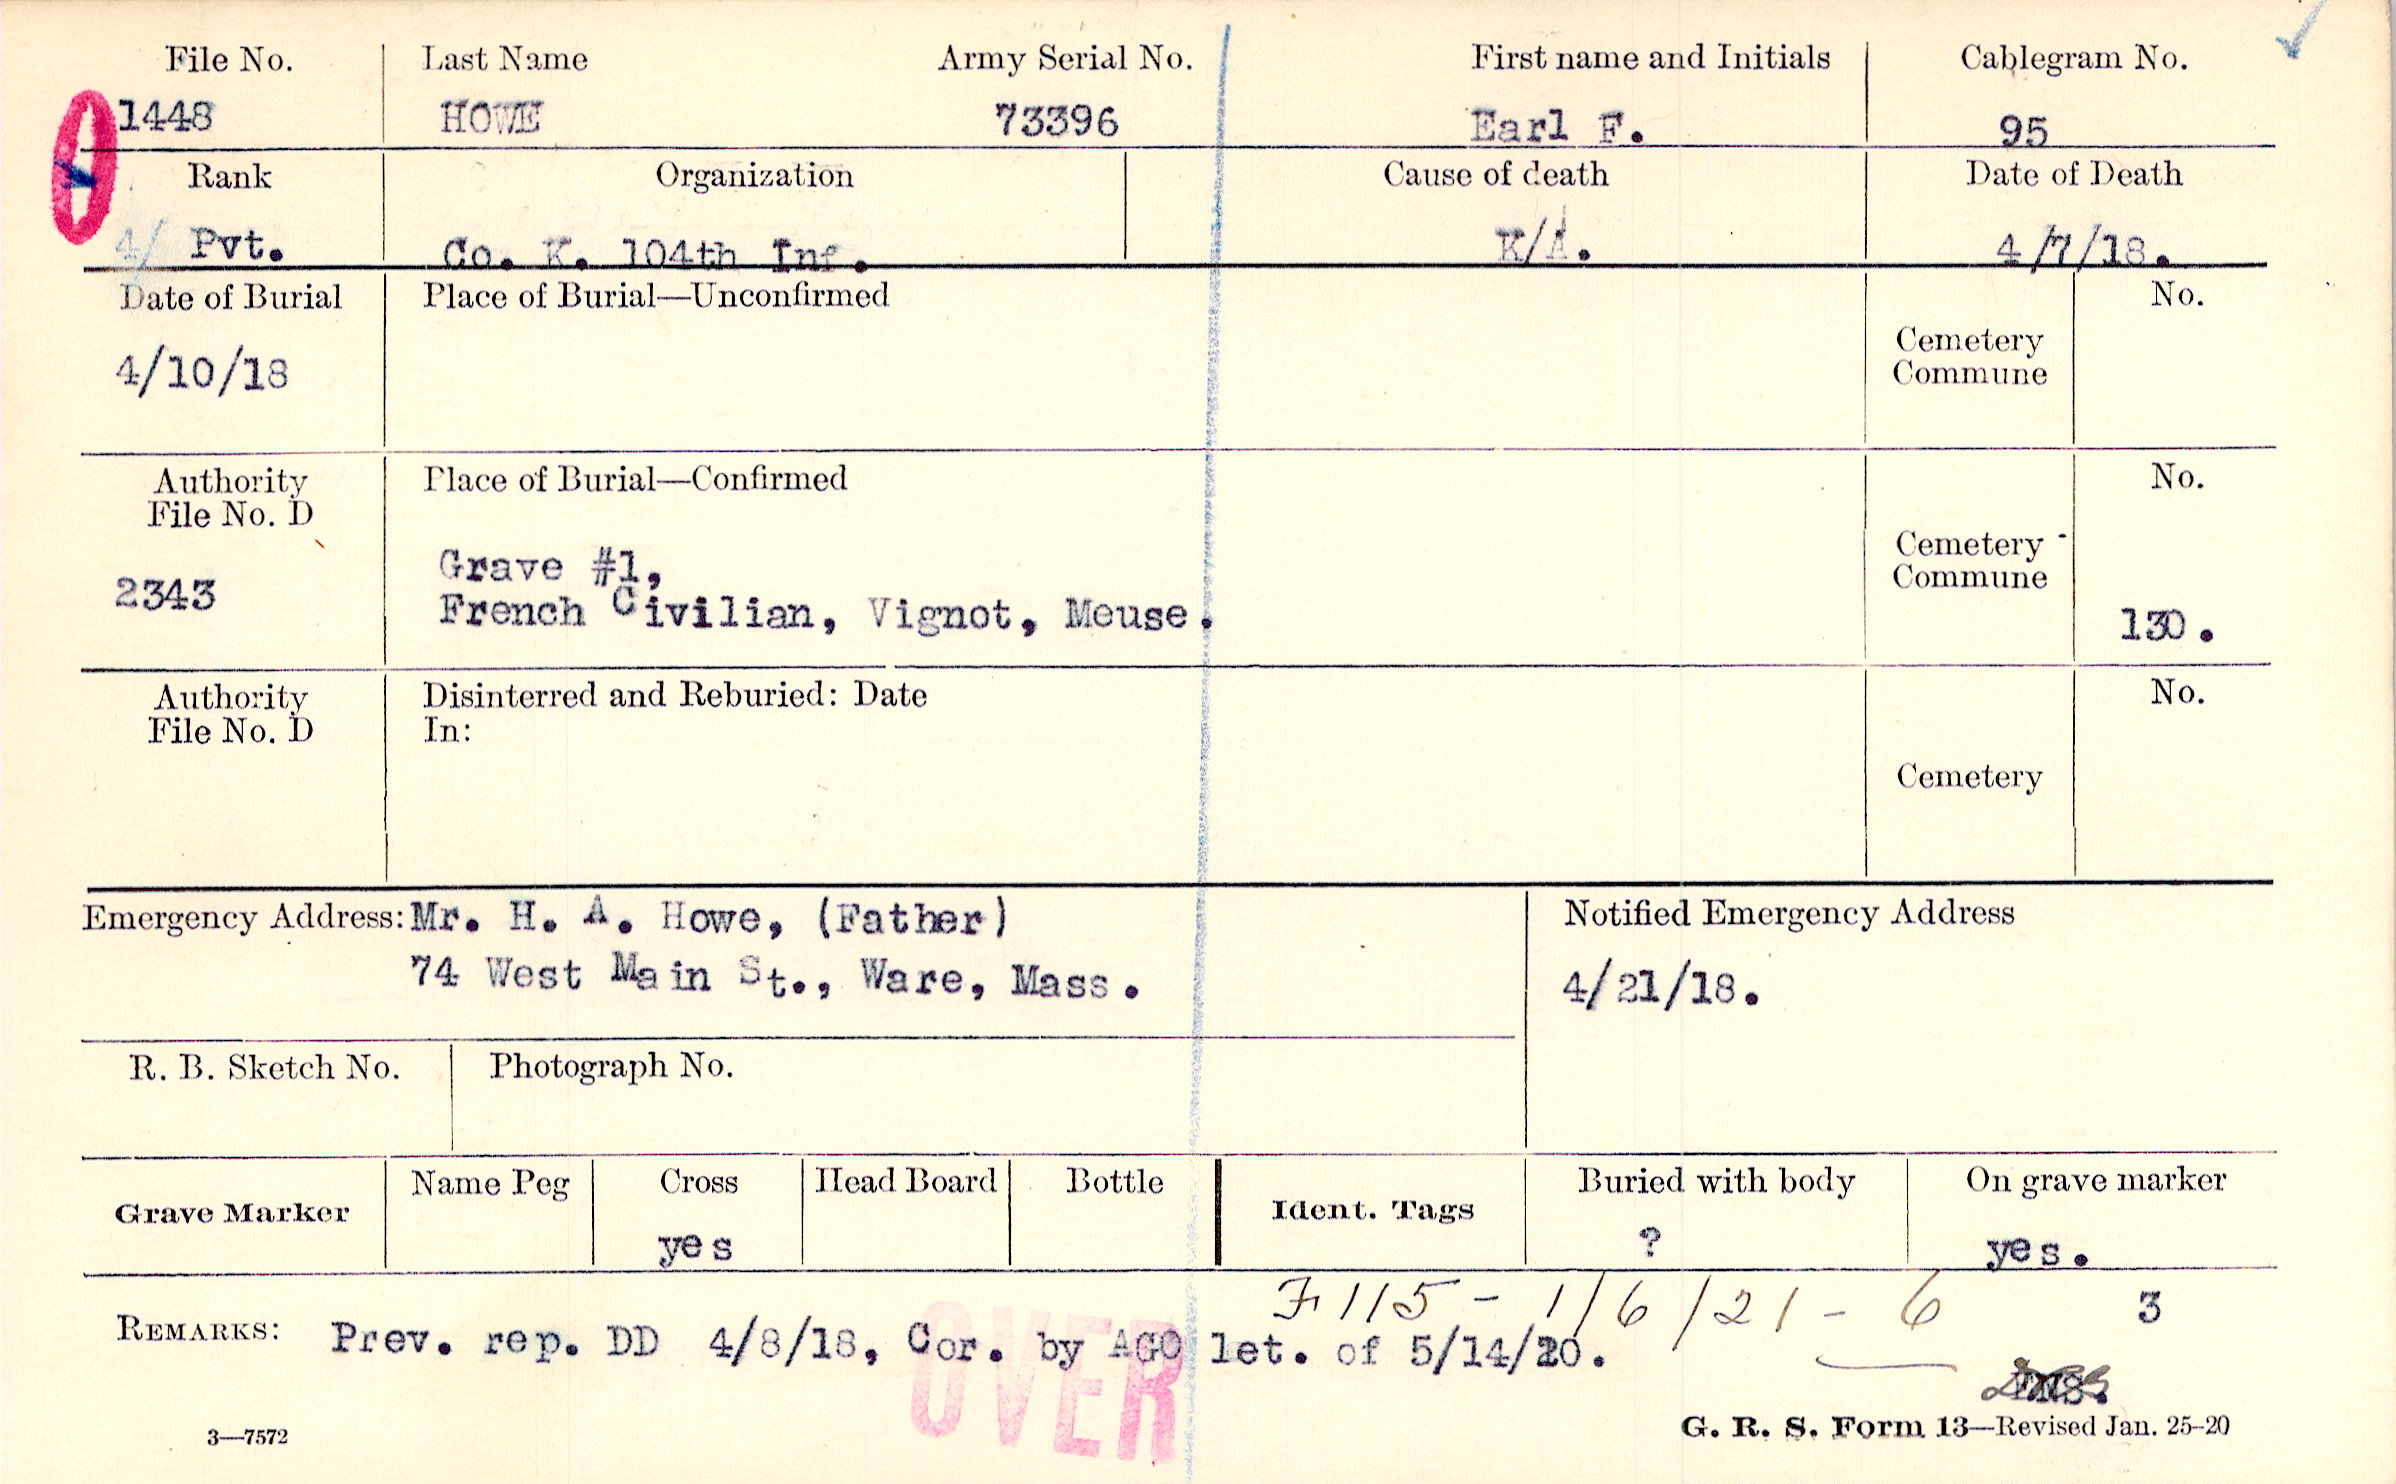 File No. Last Name Army Serial No. First name and Initials Cablegram No.
1448 HOWE 73396 Earl F. 95
Rank Organization Cause of death Date of Death
4/ Pvt. Co. K. 104th Inf. K/A. 4/7/18.
Date of Burial Place of Burial—Unconfirmed No.
4/10/18 Cemetery
Commune
Authority Place of Burial—Confirmed No.
File No. D
Grave #1, Cemetery
2343 French Civilian, Vignot, Meuse. Commune
130.
Authority Disinterred and Reburied: Date No.
File No. D In:
Cemetery
Emergency Address: Mr. H. A. Howe, (Father) Notified Emergency Address
74 West Main St., Ware, Mass. 4/21/18.
R. B. Sketch No. Photograph No.
Grave Marker Name Peg Cross Head Board Bottle Ident. Tags Buried with body On grave marker
yes ? yes.
F115 - 1/6/21 - 6 3
REMARKS: Prev. rep. DD 4/8/18, Cor. by AGO let. of 5/14/20.
OVER
3—7572 G. R. S. Form 13—Revised Jan. 25-20